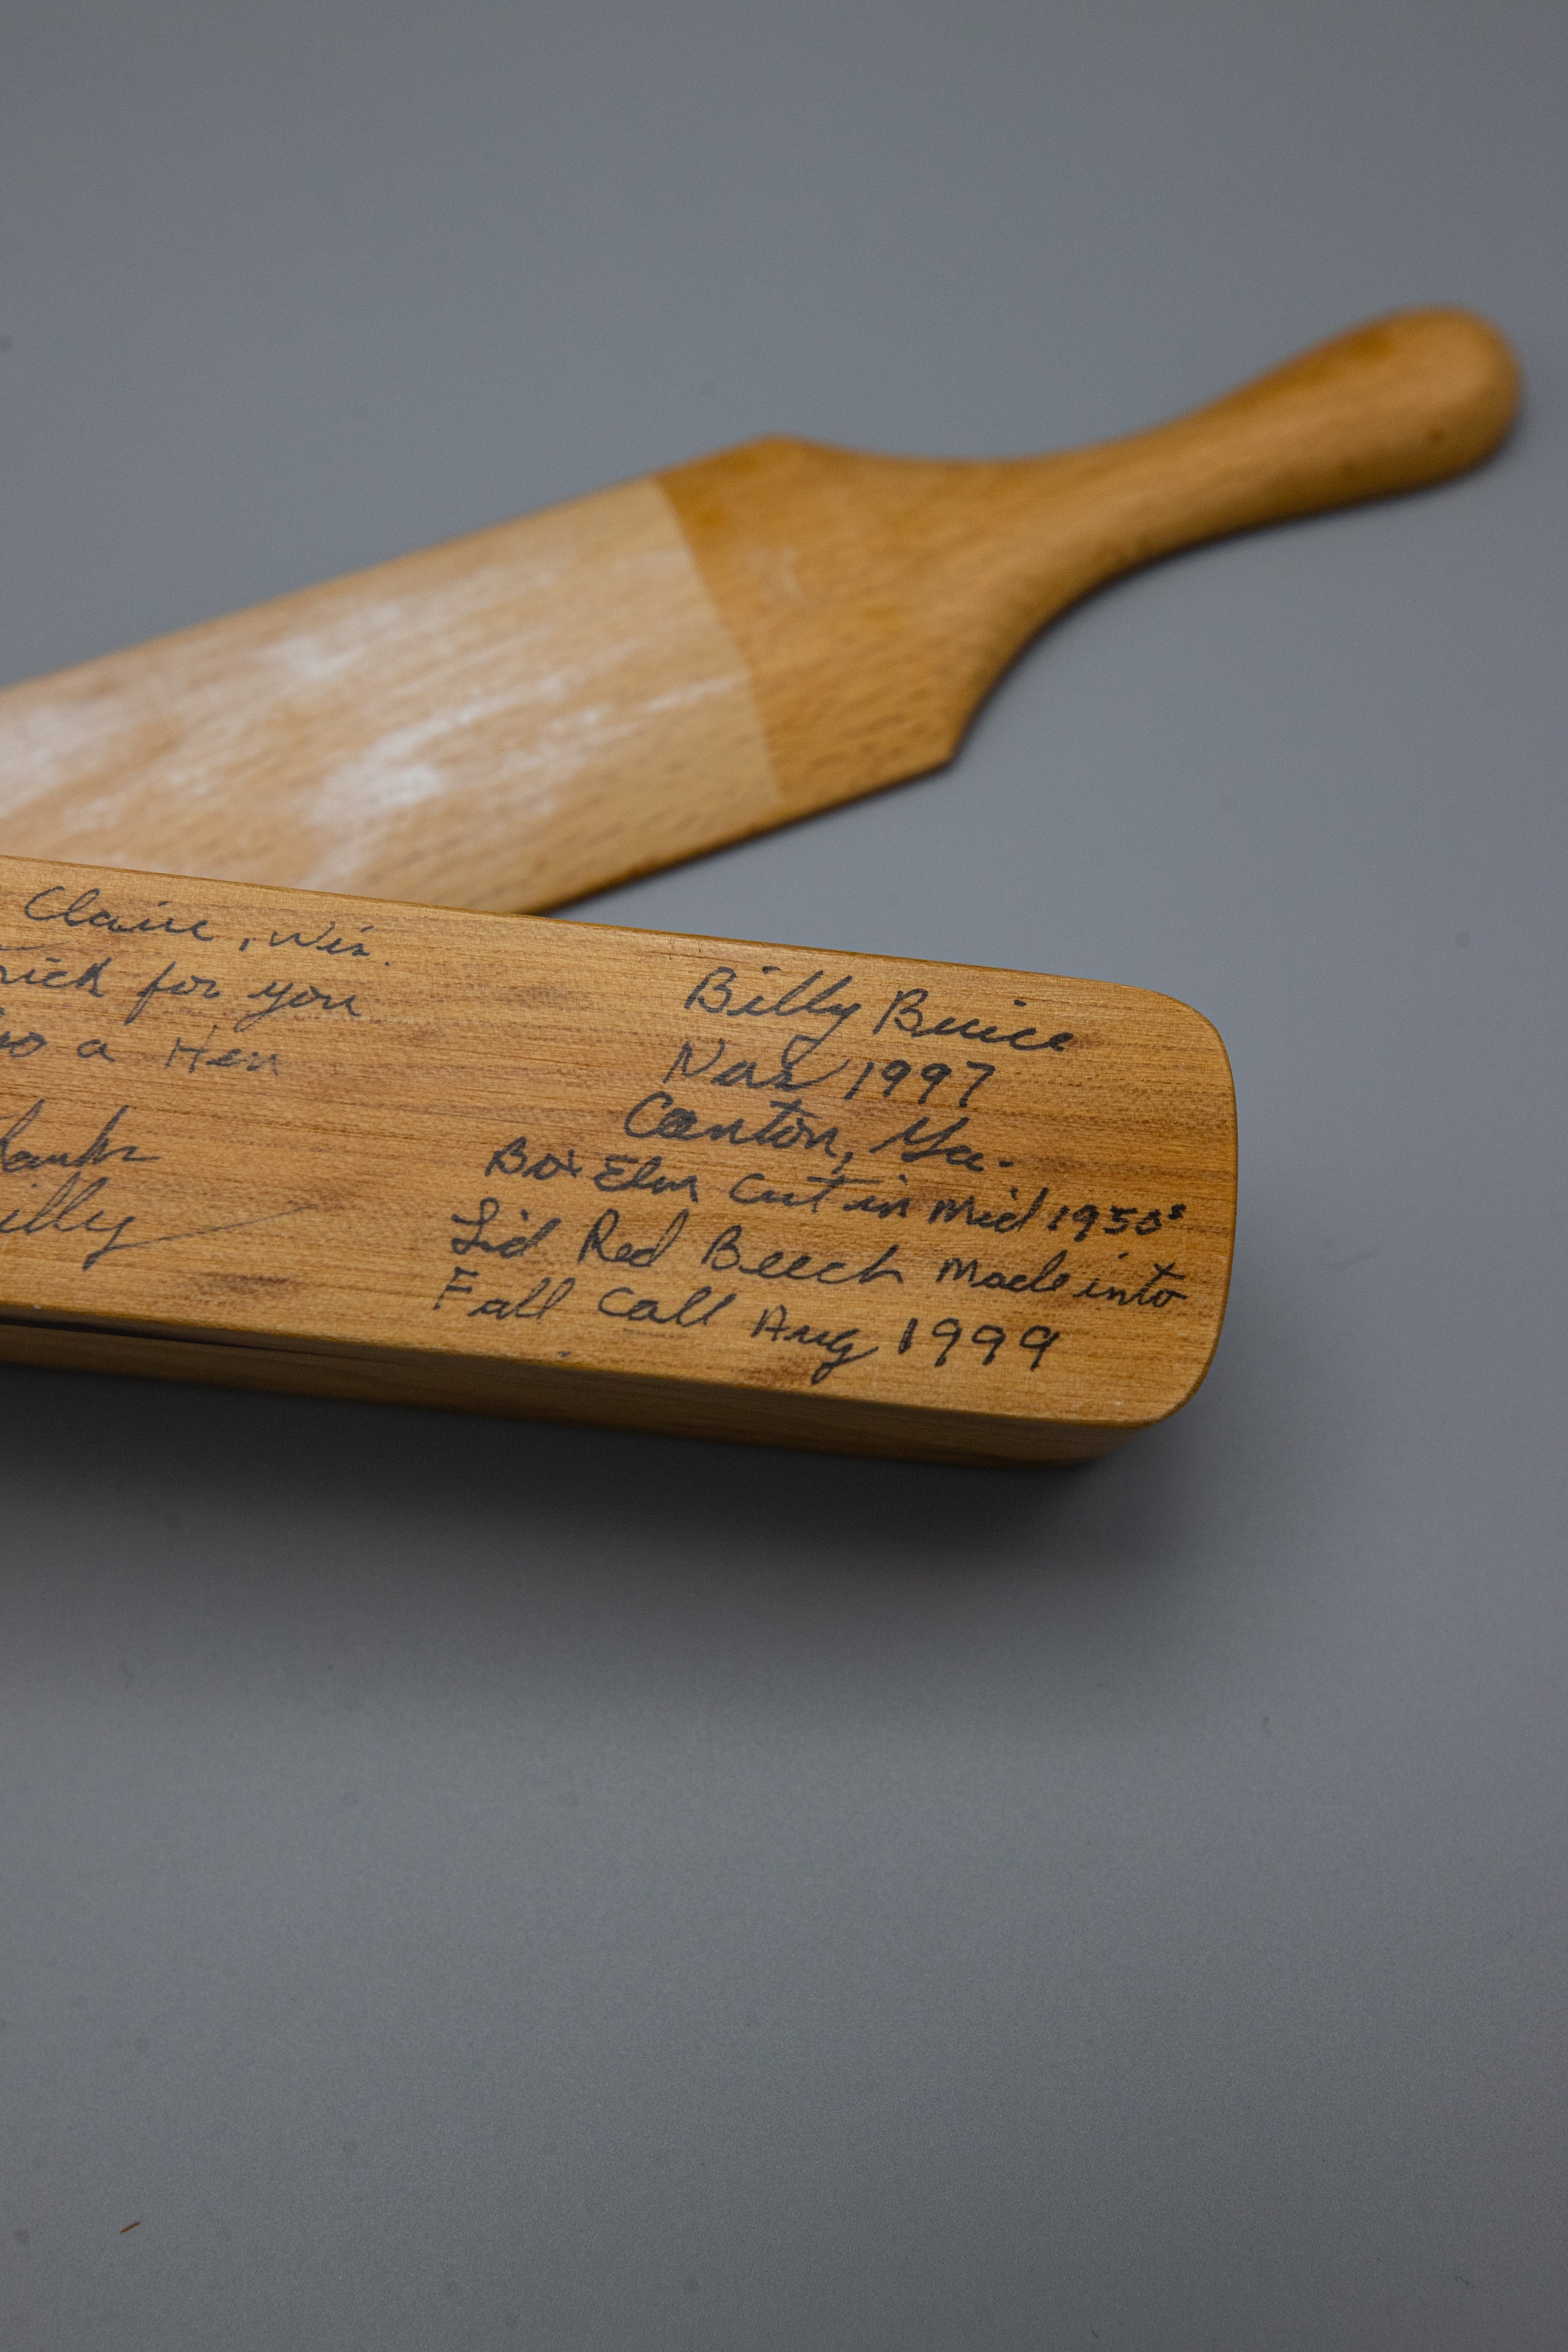 Claire, Wis.
for you
a Hen
Billy Buice
1997
Canton, Ga.
Box Elm Cut in Mid 1950s
Lid Red Beech Made into
Fall Call Aug 1999